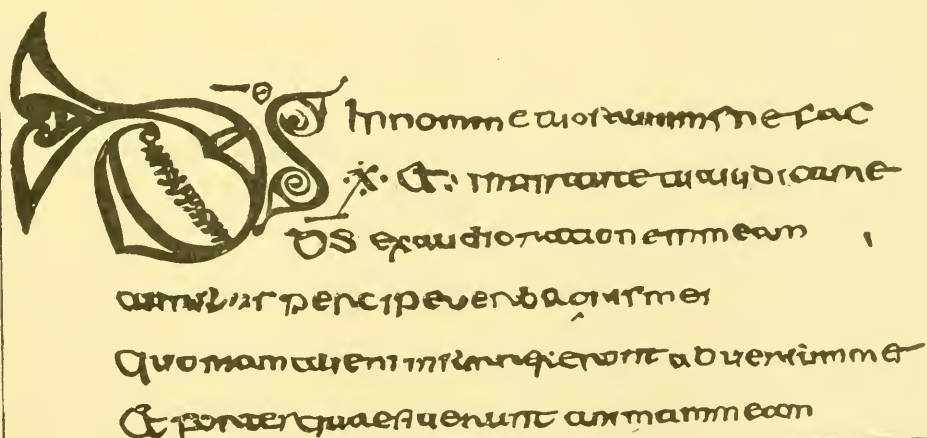 DS In nomine tuo saluum me fac
·X· Et in uirtute tua iudica me
DS exaudi orationem meam
auribus percipe uerba oris mei
quoniam alieni insurrexerunt aduersum me
Et fortes quaesierunt animam meam